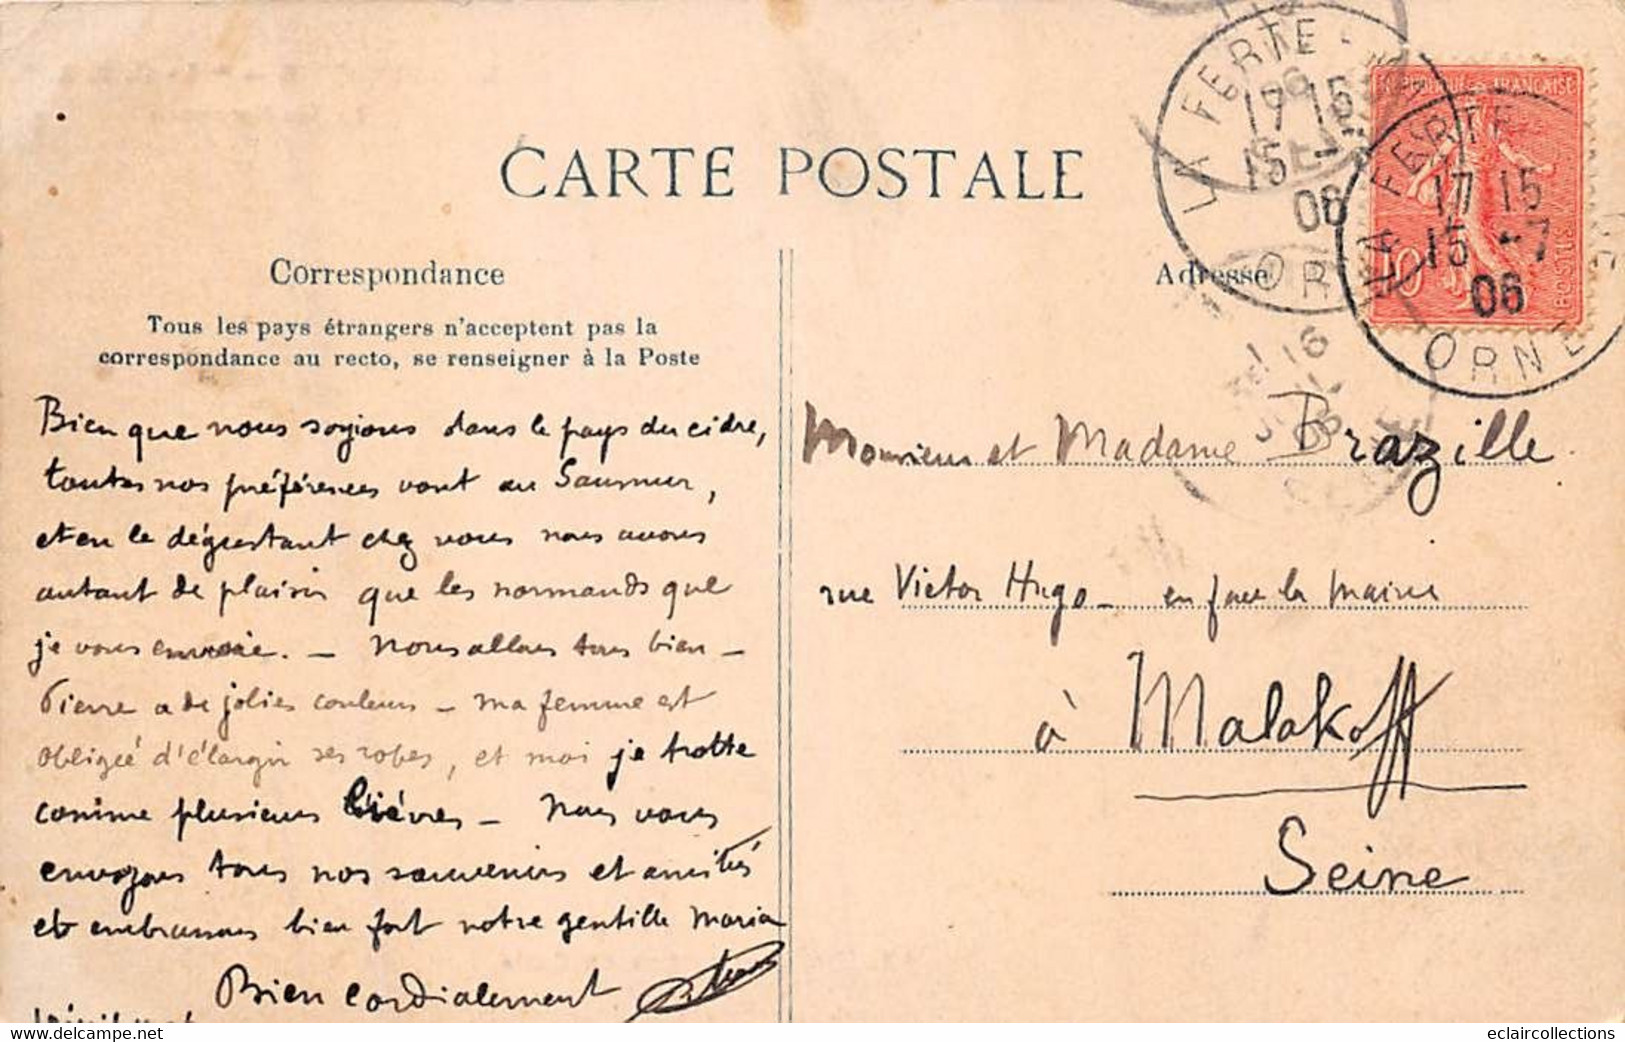 CARTE POSTALE
Correspondance
Tous les pays étrangers n'acceptent pas la
correspondance au recto, se renseigner à la Poste
Bien que nous soyions dans le pays du cidre,
toutes nos préférences vont au Saumur,
et en le dégustant chez vous nous avons
autant de plaisir que les normands que
je vous envoie. — Nous allons tous bien —
Pierre a de jolies couleurs — ma femme est
obligée d'élargir ses robes, et moi je trotte
comme plusieurs lièvres — Nous vous
envoyons tous nos souvenirs et amitiés
et embrassons bien fort votre gentille Maria
Bien cordialement
Adresse
Monsieur et Madame Brazille
rue Victor Hugo — en face la mairie
à Malakoff
Seine
LA FERTE
17 15
15 -7
06
ORNE
LA FERTE
17 15
15 -7
06
ORNE
REPUBLIQUE FRANÇAISE
10
POSTES
16
eclaircollections
www.delcampe.net